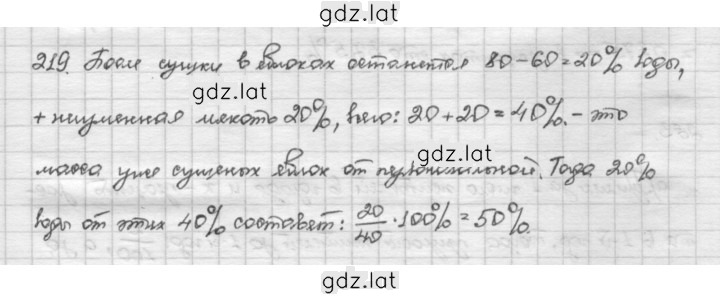 gdz.lat
219. После сушки в яблоках останется 80-60=20% воды,
gdz.lat
+ неизменная мякоть 20%, всего: 20+20=40%. - это
масса уже сушеных яблок от первоначальной. Тогда 20%
gdz.lat
воды от этих 40% составят: 20/40 · 100% = 50%.
gdz.lat